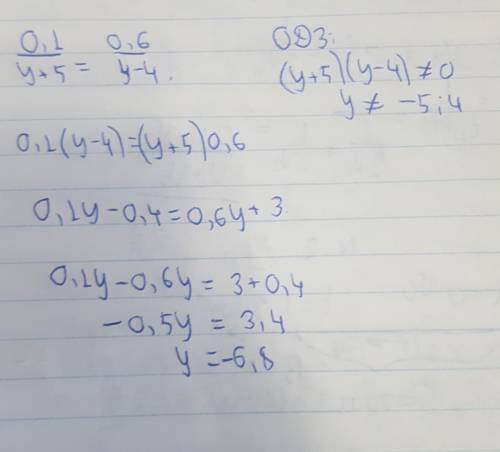 0,1/(y+5) = 0,6/(y-4).
ОДЗ:
(y+5)(y-4)≠0
y ≠ -5; 4
0,1(y-4)=(y+5)0,6
0,1y-0,4=0,6y+3
0,1y-0,6y = 3+0,4
-0,5y = 3,4
y =-6,8